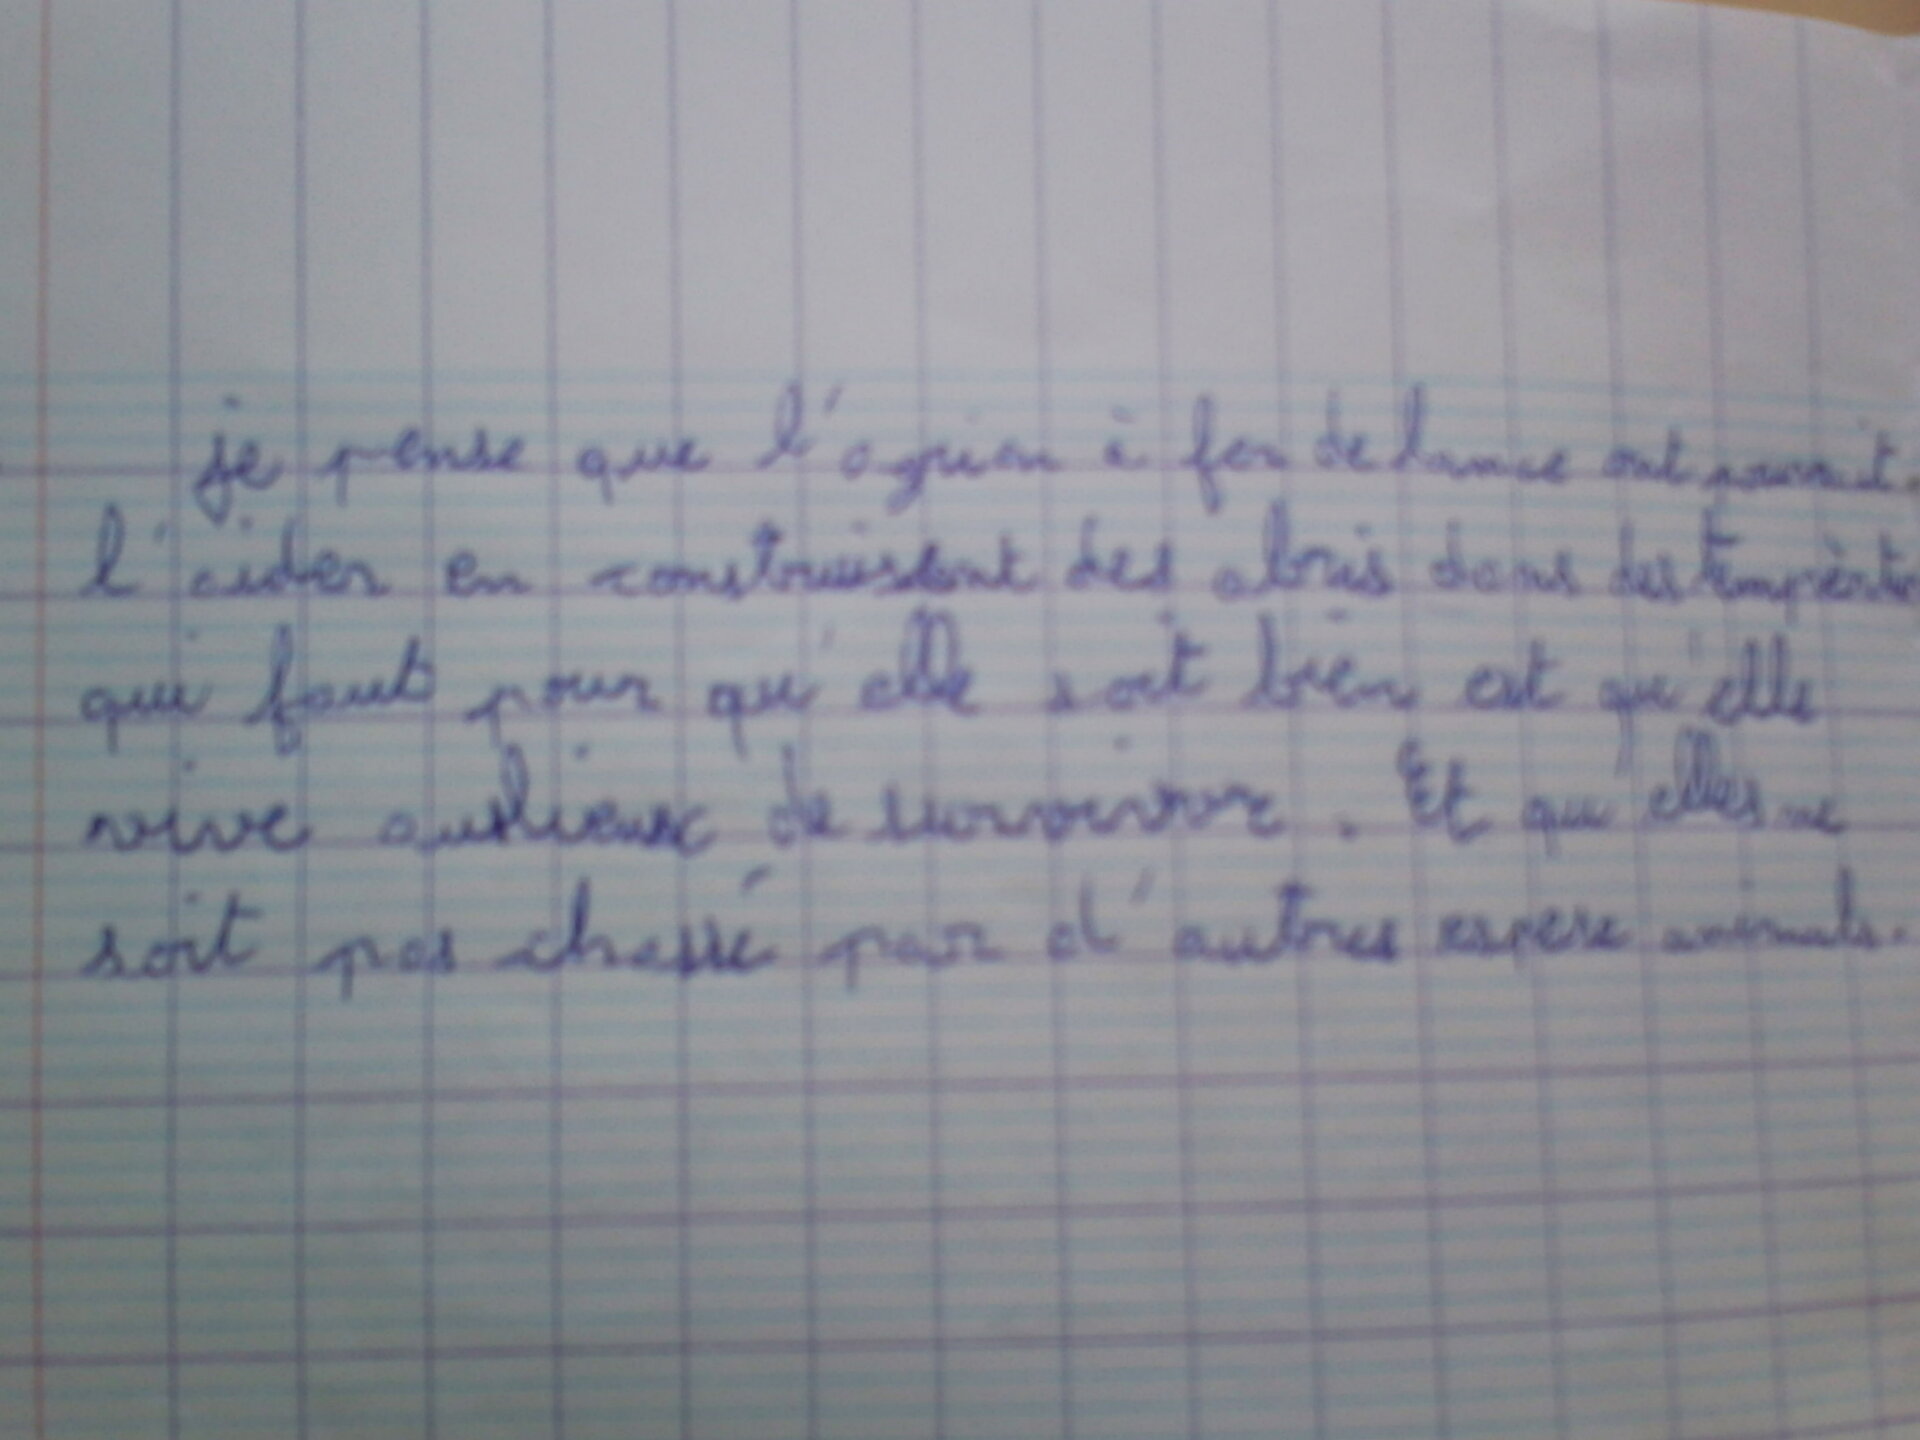 je pense que l'agrion à fer de lance ont pourrait
l'aider en construisent des abris dans des
qui faut pour qu'elle soit bien est qu'elle
vive aulieux de survivre. Et qu'elles ne
soit pas chassé par d'autres espese animals.